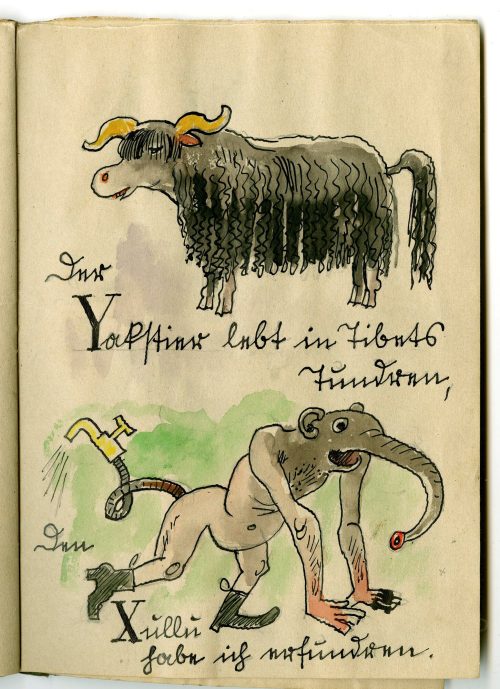 Der
Yakstier lebt in Tibets
Tundren,
den
Xullu
habe ich erfundren.